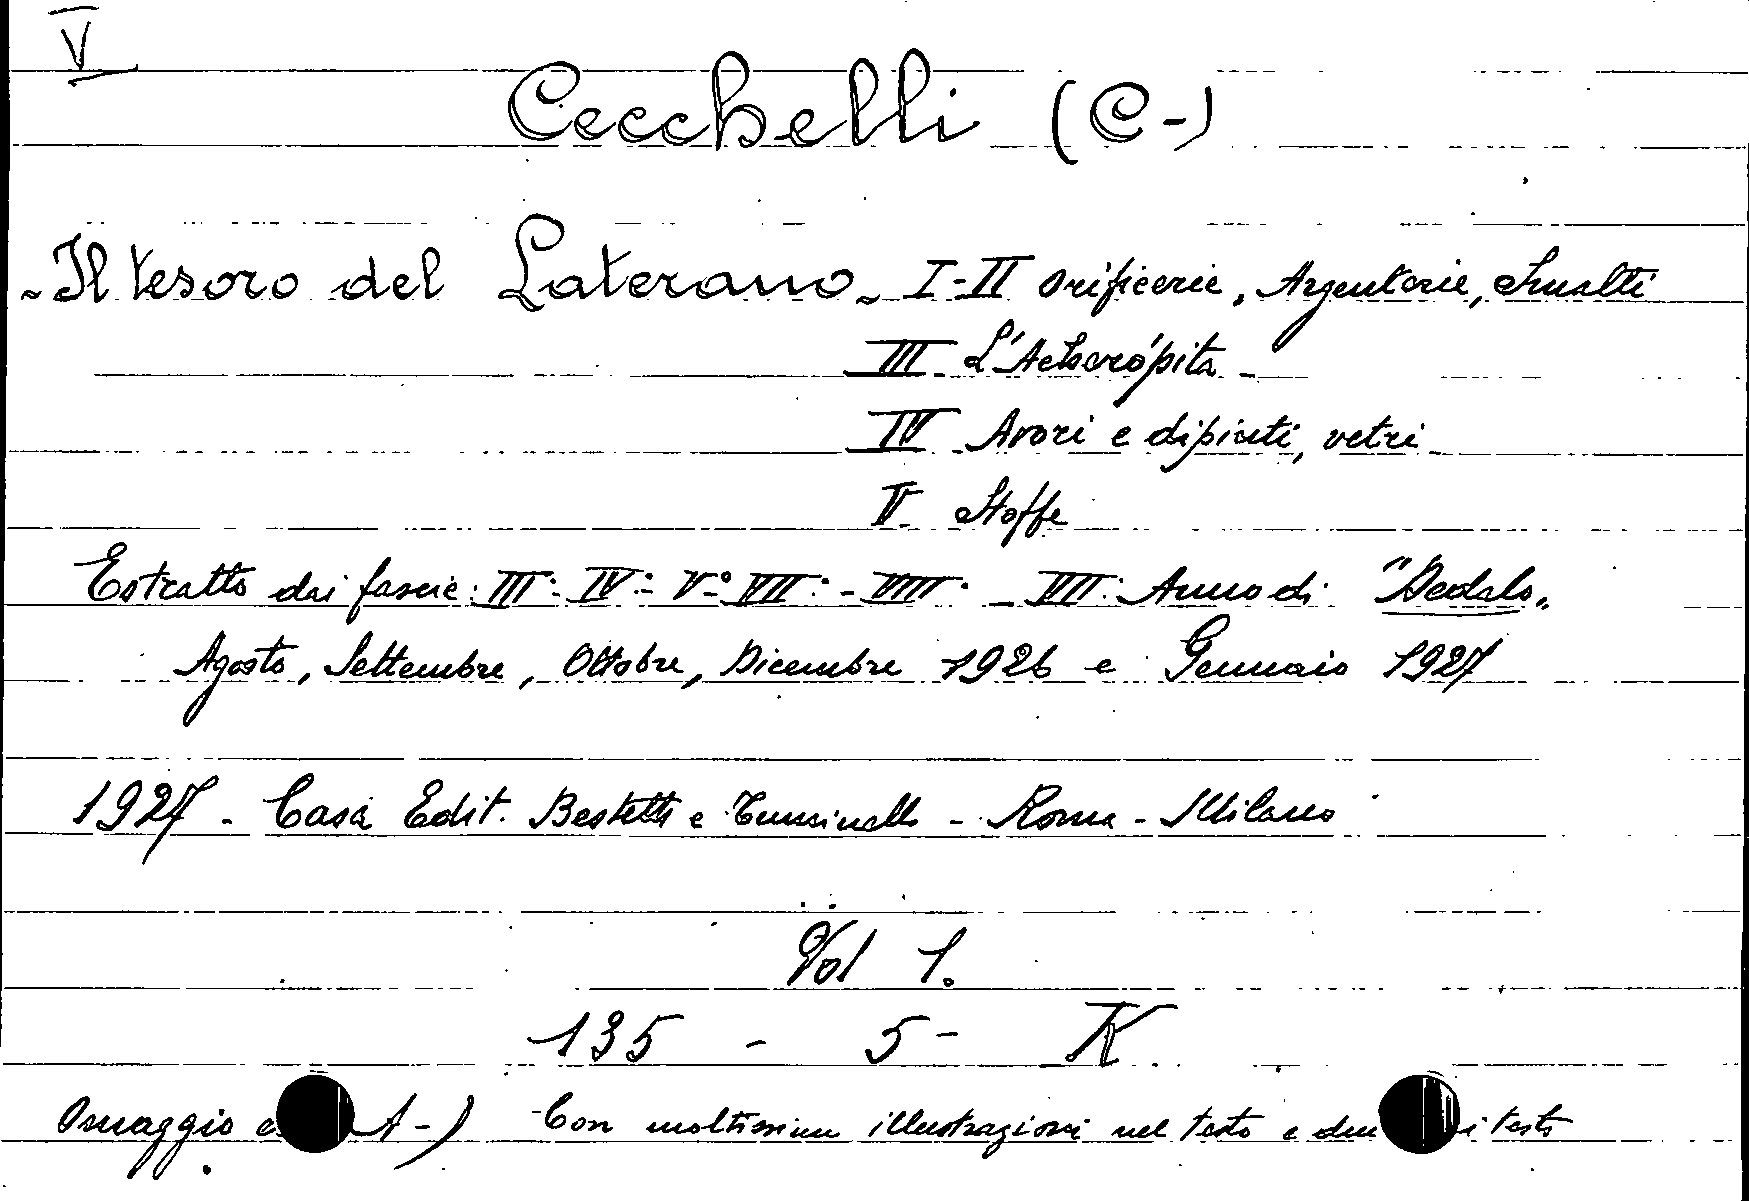 V
Cecchelli (C-)
- Il tesoro del Laterano - I-II Orificerie, Argenterie, Smalti
III - L'Acheròpita -
IV Avori e dipinti, vetri
V - Stoffe
Estratto dai fascic: III: IV: - V° VII: - VIII: - VII: Anno di "Dedalo"
Agosto, Settembre, Ottobre, Dicembre 1926 e Gennaio 1927
1927 - Casa Edit. Bestetti e Tumminelli - Roma - Milano
Vol 1.
135 - 5 - K
Omaggio A-) Con moltissime illustrazioni nel testo e testo